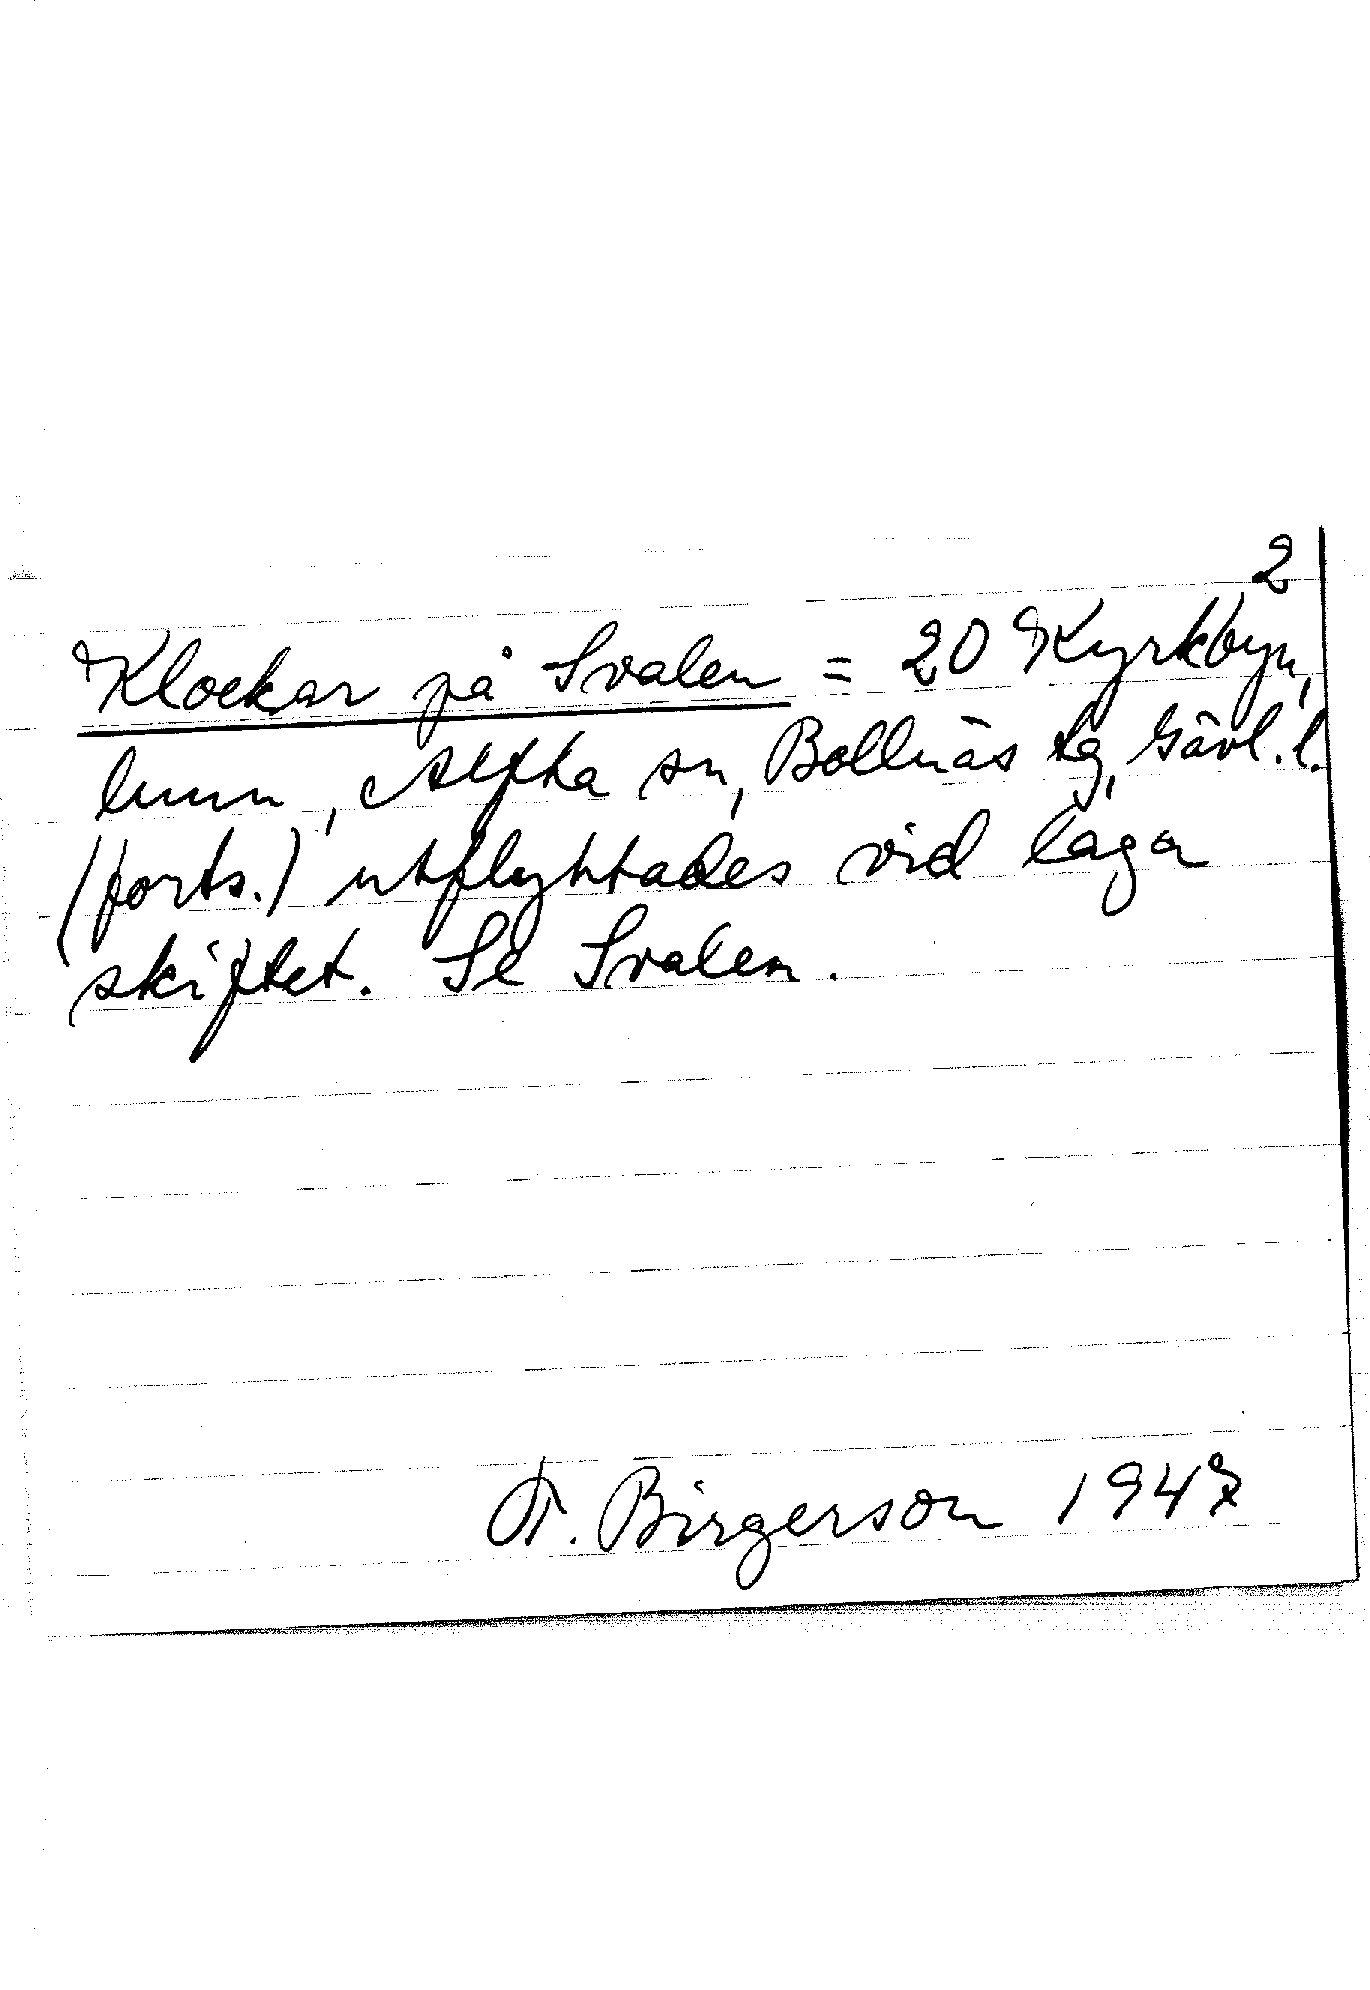 2
Klockar på Svalen = 20 Kyrkbyn,
hmn, Alfta sn, Bollnäs tg, Gävl. l.
(forts.) utflyttades vid laga
skiftet. Se Svalen.
F. Birgerson 1947